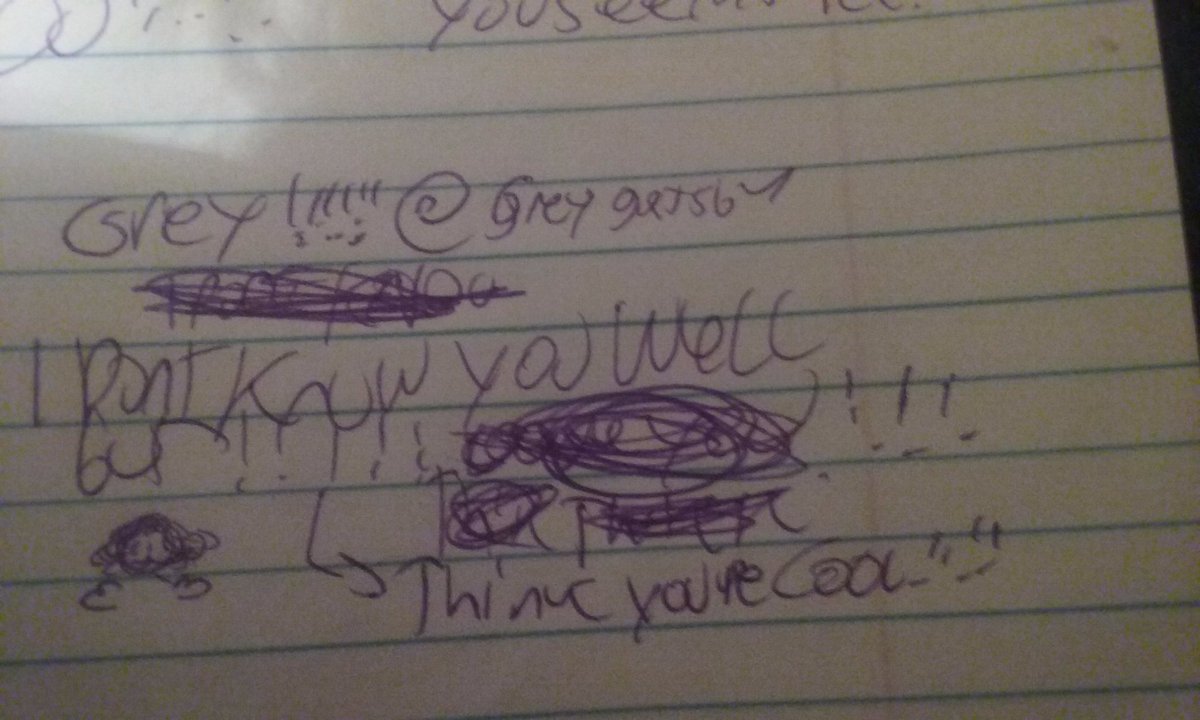 you seem
Grey!!!!! @Greygatsby
I Dont Know you Well
but !!!!! !!!
Think you're Cool!!!